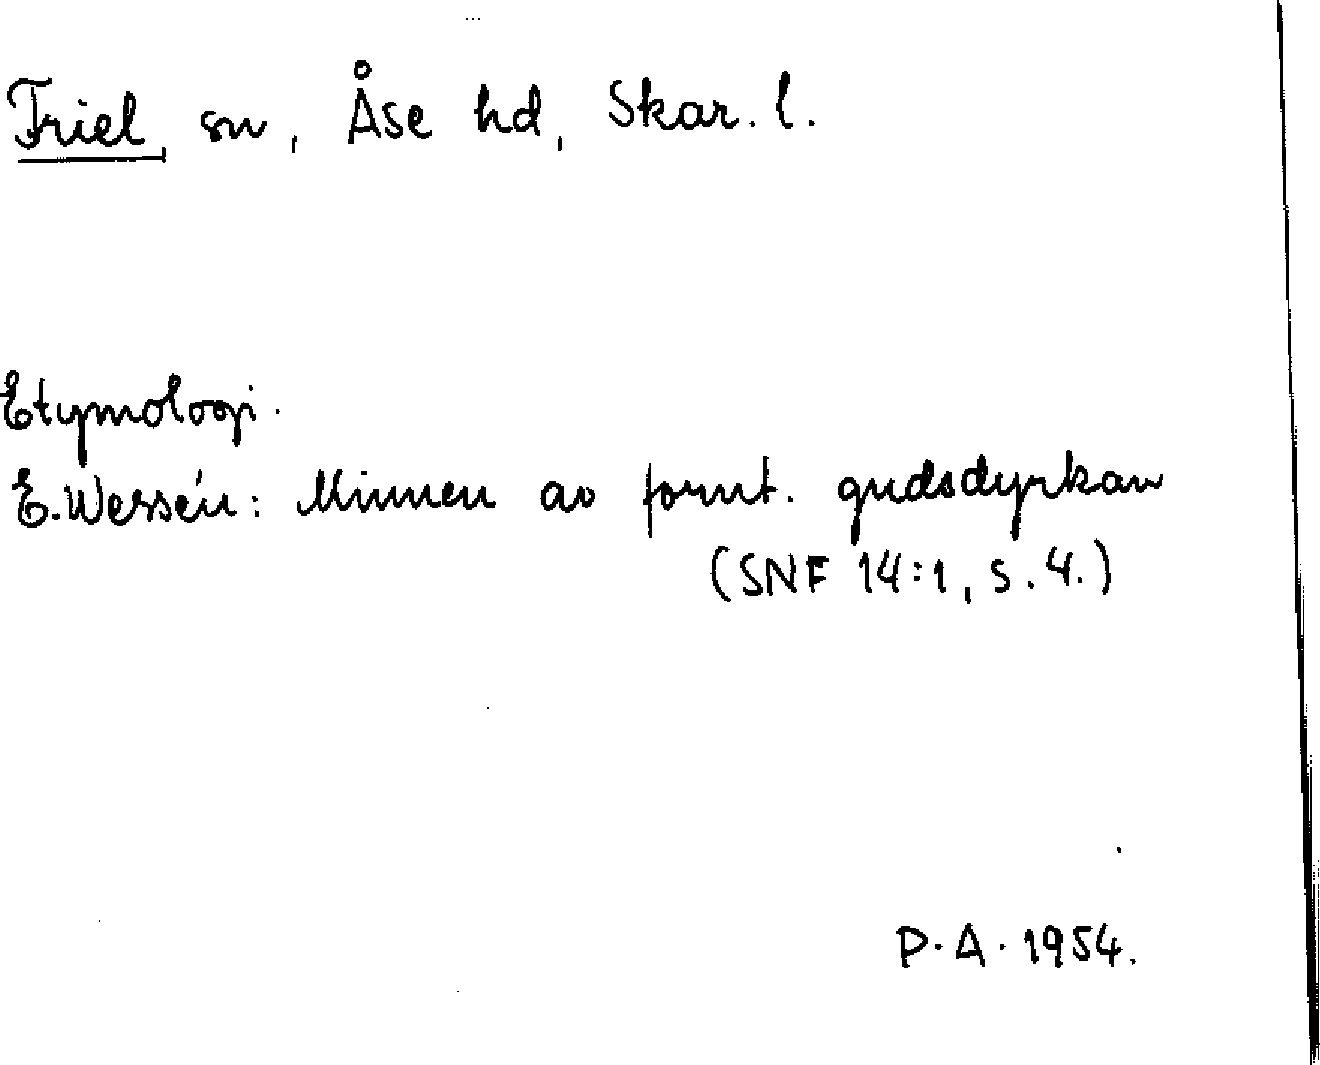 Friel sn, Åse hd, Skar. l.
Etymologi.
E. Wessén: Minnen av fornt. gudsdyrkan
(SNF 14:1, s. 4.)
P. A. 1954.